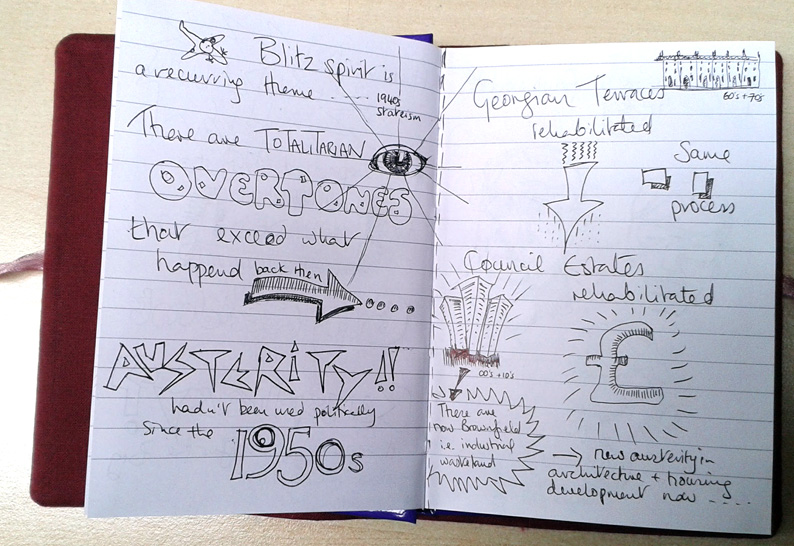 Blitz spirit is
a recurring theme .....
1940s
stateism
There are TOTALITARIAN
OVERTONES
that exceed what
happend back then
AUSTERITY!!
hadn't been used politically
since the
1950s
Georgian Terraces
60's + 70s
rehabilitated
Same
process
Council Estates
rehabilitated
£
00's + 10's
There are
now Brownfield
i.e. industrial
wasteland
→ new austerity in
architecture + housing
development now ....